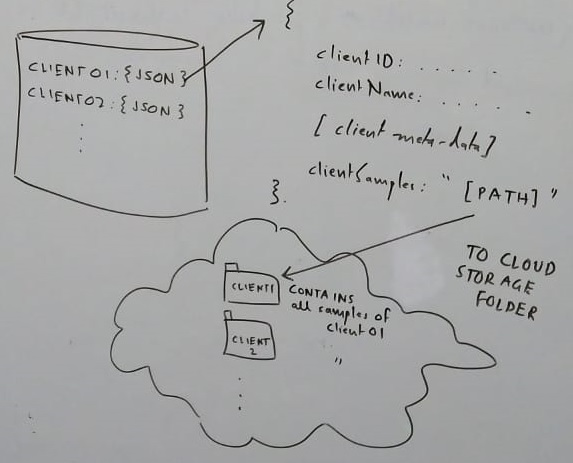 CLIENT01 : {JSON}
CLIENT02 : {JSON}
{
clientID : . . . . .
clientName : . . . . .
[ client meta-data ]
clientSamples : " [PATH] "
}.
TO CLOUD
STORAGE
FOLDER
CLIENT1
CONTAINS
all samples of
client 01
CLIENT
2
"